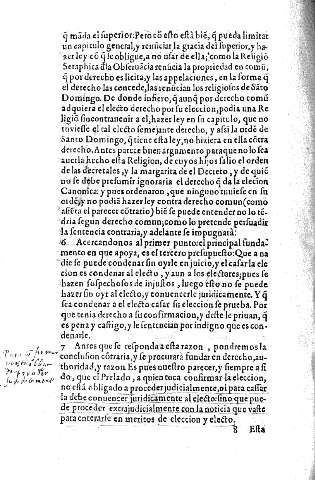 q̃ mãda el superior: Pero cõ esto està biẽ, q̃ pueda limitar
un capitulo general, y renũciar la gracia del superior, y ha-
zer ley cõ q̃ le obligue, a no usar de ella; como la Religiõ
Seraphica d̃la Obserũacia renũcia la propriedad en comũ,
q̃ por derecho es licita, y las appelaciones, en la forma q̃
el derecho las concede, las renũcian los religiosos de Sãto
Domingo. De donde infiero, q̃ aunq̃ por derecho comũ
adquiera el electo derecho por su eleccion, podia una Re
ligiõ sin contravenir a el, hazer ley en su capitulo, que no
tuviesse el tal electo semejante derecho, y assi la ordẽ de
Santo Domingo, q̃ tiene esta ley, no hiziera en ella cõtra
derecho. Antes parece buen argumento para que no sea
auerla hecho esta Religion, de cuyos hijos salio el orden
de las decretales, y la margarita de el Decreto, y de quiẽ
no se debe presumir ignoraria el derecho q̃ da la eleccion
Canonica: y pues ordenaron, que ninguno tuviesse en su
ordẽ, y no podiã hazer ley contra derecho comun (como
assẽta el parecer cõtrario) biẽ se puede entender no lo tẽ-
dria segun derecho comun; como lo pretende persuadir
la sentencia contraria, y adelante se impugnarà.
6 Acercandonos al primer punto: el principal funda-
mento en que apoya, es el tercero presupuesto: Que a na
die se puede condenar sin oyrle en juicio, y el casar la ele
cion es condenar al electo, y aun a los electores; pues se
hazen suspechosos de injustos, luego esto no se puede
hazer sin oyr al electo, y convencerle juridicamente. Y q̃
sea condenar a el electo casar su eleccion se prueba. Por
que tenia derecho a su confirmacion, y deste le privan, q̃
es pena y castigo, y le sentencian por indigno que es con-
denarle.
7 Antes que se responda a esta razon, pondremos la
conclusion cõtraria, y se procurarà fundar en derecho, au-
thoridad, y razon Es pues nuestro parecer, y siempre a si
do, que el Prelado, a quien toca confirmar la eleccion,
no està obligado a proceder judicialmente, ni para casar
la debe convencer juridicamente al electo: sino que pue-
de proceder extrajudicialmente con la noticia que vaste
para enterarse en meritos de eleccion y electo.
8 Esta